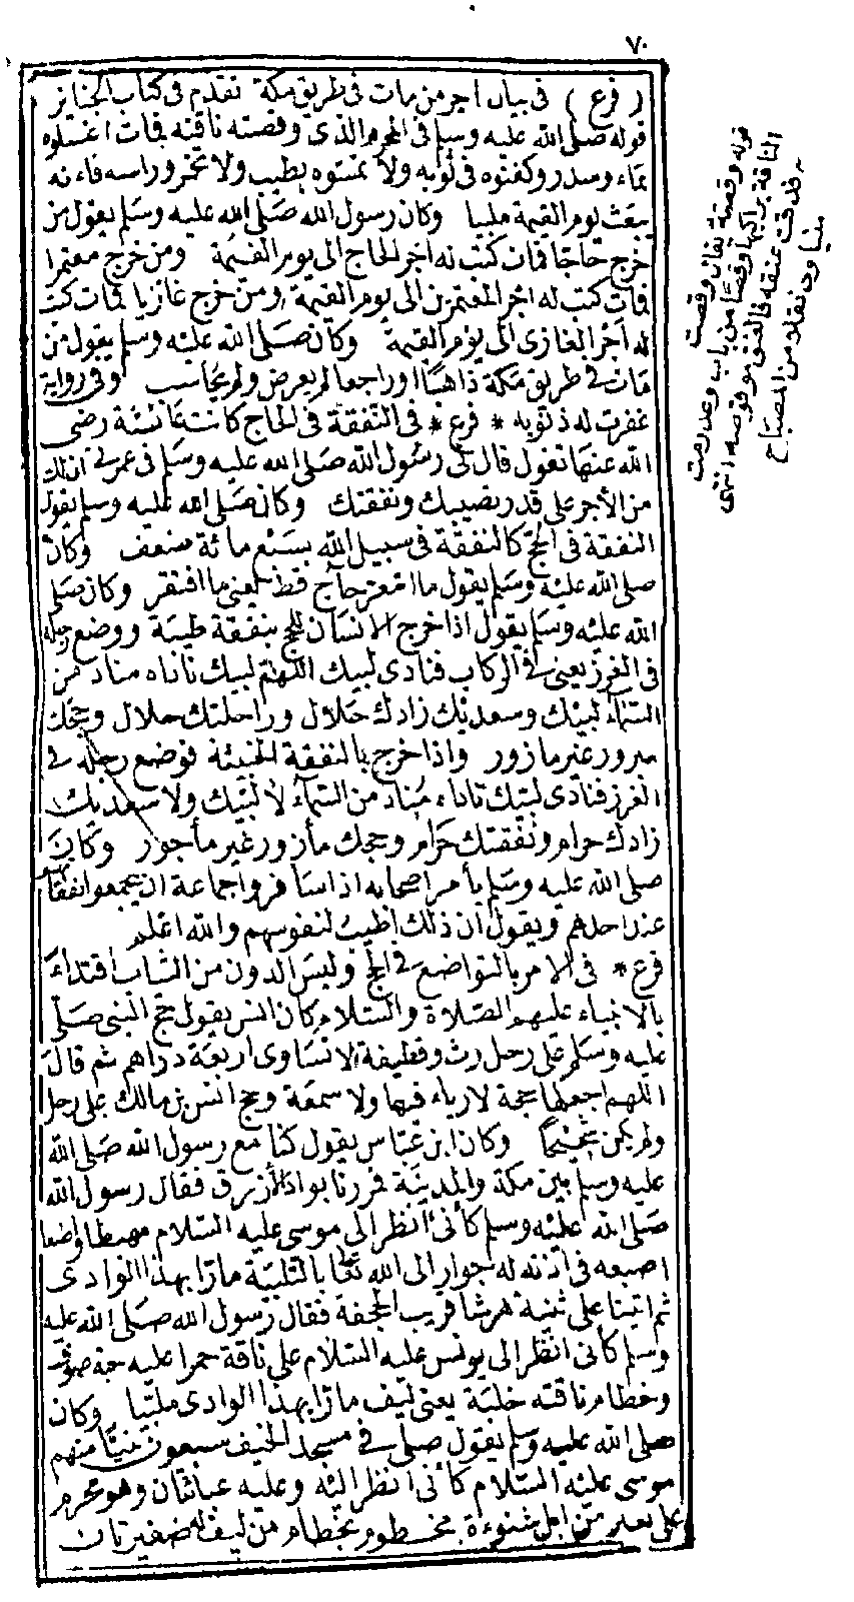 ٧٠
( فرع ) فى بيان اجر من مات فى طريق مكة تقدم فى كتاب الجنائز
قوله صلى الله عليه وسلم فى المحرم الذى وقصته ناقته فمات اغسلوه
بماء وسدر وكفنوه فى ثوبه ولا تمسوه بطيب ولا تخمروا راسه فانه
يبعث يوم القيمة ملبيا وكان رسول الله صلى الله عليه وسلم يقول من
خرج حاجا فمات كتب له اجر الحاج الى يوم القيمة ومن خرج معتمرا
فمات كتب له اجر المعتمرين الى يوم القيمة ومن خرج غازيا فمات كتب
له اجر الغازى الى يوم القيمة وكان صلى الله عليه وسلم يقول من
مات فى طريق مكة ذاهبا او راجعا لم يعرض ولم يحاسب وفى رواية
غفرت له ذنوبه * فرع * فى النفقة فى الحاج كانت عائشة رضى
الله عنها تقول قال لى رسول الله صلى الله عليه وسلم فى عمرتى ان لك
من الأجر على قدر نصبك ونفقتك وكان صلى الله عليه وسلم يقول
النفقة فى الحج كالنفقة فى سبيل الله بسبع مائة ضعف وكان
صلى الله عليه وسلم يقول ما امعر حاج قط يعنى ما افتقر وكان صلى
الله عليه وسلم يقول اذا خرج الانسان للحج بنفقة طيبة ووضع رجله
فى الغرز يعنى فى الركاب فنادى لبيك اللهم لبيك ناداه مناد من
السماء لبيك وسعديك زادك حلال وراحلتك حلال وحجك
مبرور غير مازور واذا خرج بالنفقة الخبيثة فوضع رجله فى
الغرز فنادى لبيك ناداه مناد من السماء لا لبيك ولا سعديك
زادك حرام ونفقتك حرام وحجك مأزور غير مأجور وكان
صلى الله عليه وسلم يأمر اصحابه اذا سافروا جماعة ان يجمعوا نفقاتهم
عند احدهم ويقول ان ذلك اطيب لنفوسهم والله اعلم
فرع * فى الامر بالتواضع فى الحج ولبس الدون من الثياب اقتداء
بالانبياء عليهم الصلاة والسلام كان انس يقول حج النبى صلى
عليه وسلم على رحل رث وقطيفة لا تساوى اربعة دراهم ثم قال
اللهم اجعلها حجة لا رياء فيها ولا سمعة وحج انس بن مالك على رحل
ولم يكن شحيحا وكان ابن عباس يقول كنا مع رسول الله صلى الله
عليه وسلم بين مكة والمدينة فمررنا بواد الأزرق فقال رسول الله
صلى الله عليه وسلم كأنى انظر الى موسى عليه السلام مهبطا واضعا
اصبعه فى اذنه له جوار الى الله تعا بالتلبية مارا بهذا الوادى
ثم اتينا على ثنية هرشا قريب الجحفة فقال رسول الله صلى الله عليه
وسلم كأنى انظر الى يونس عليه السلام على ناقة حمرا عليه جبة صوف
وخطام ناقته خلبة يعنى ليف مارا بهذا الوادى ملبيا وكان
صلى الله عليه وسلم يقول صلى فى مسجد الخيف سبعون نبيا منهم
موسى عليه السلام كأنى انظر اليه وعليه عبائتان وهو محرم
على بعير من ابل شنوءة مخطوم بخطام من ليف له ضفيرتان
قوله وقصته يقال وقصت
الناقة براكبها وقصا من باب وعد رمت
به فدقت عنقه فالعنق موقوصه انتهى
من المصباح